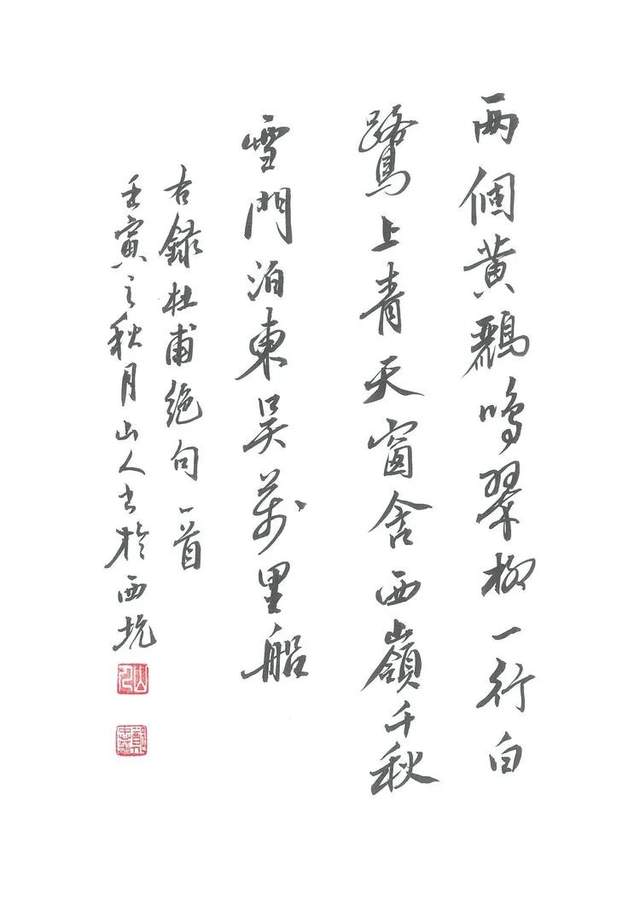 两個黄鸝鳴翠柳一行白
鷺上青天窗含西嶺千秋
雪門泊東吳萬里船
右録杜甫絶句一首
壬寅之秋月山人書於西坑